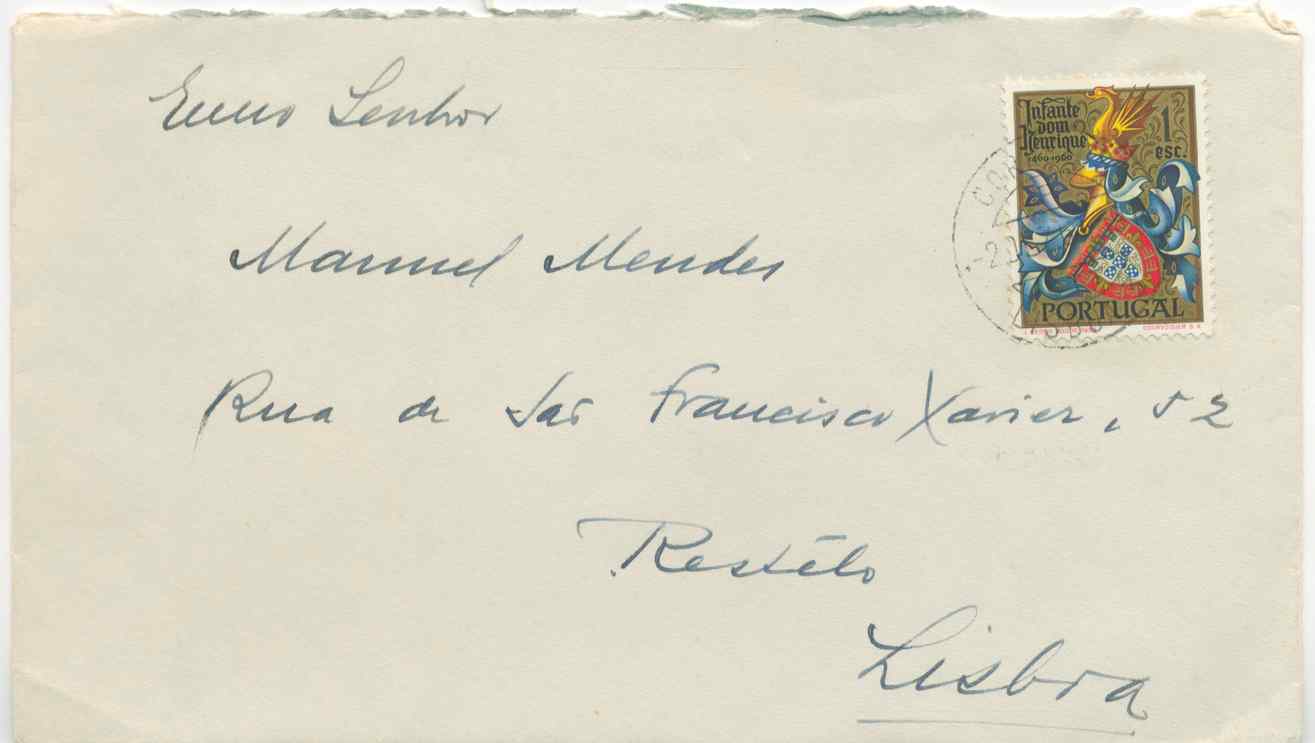 Exmo Senhor
Manuel Mendes
Rua de São Francisco Xavier, 52
Restêlo
Lisboa
Infante
dom
Henrique
1460-1960
1
esc.
PORTUGAL